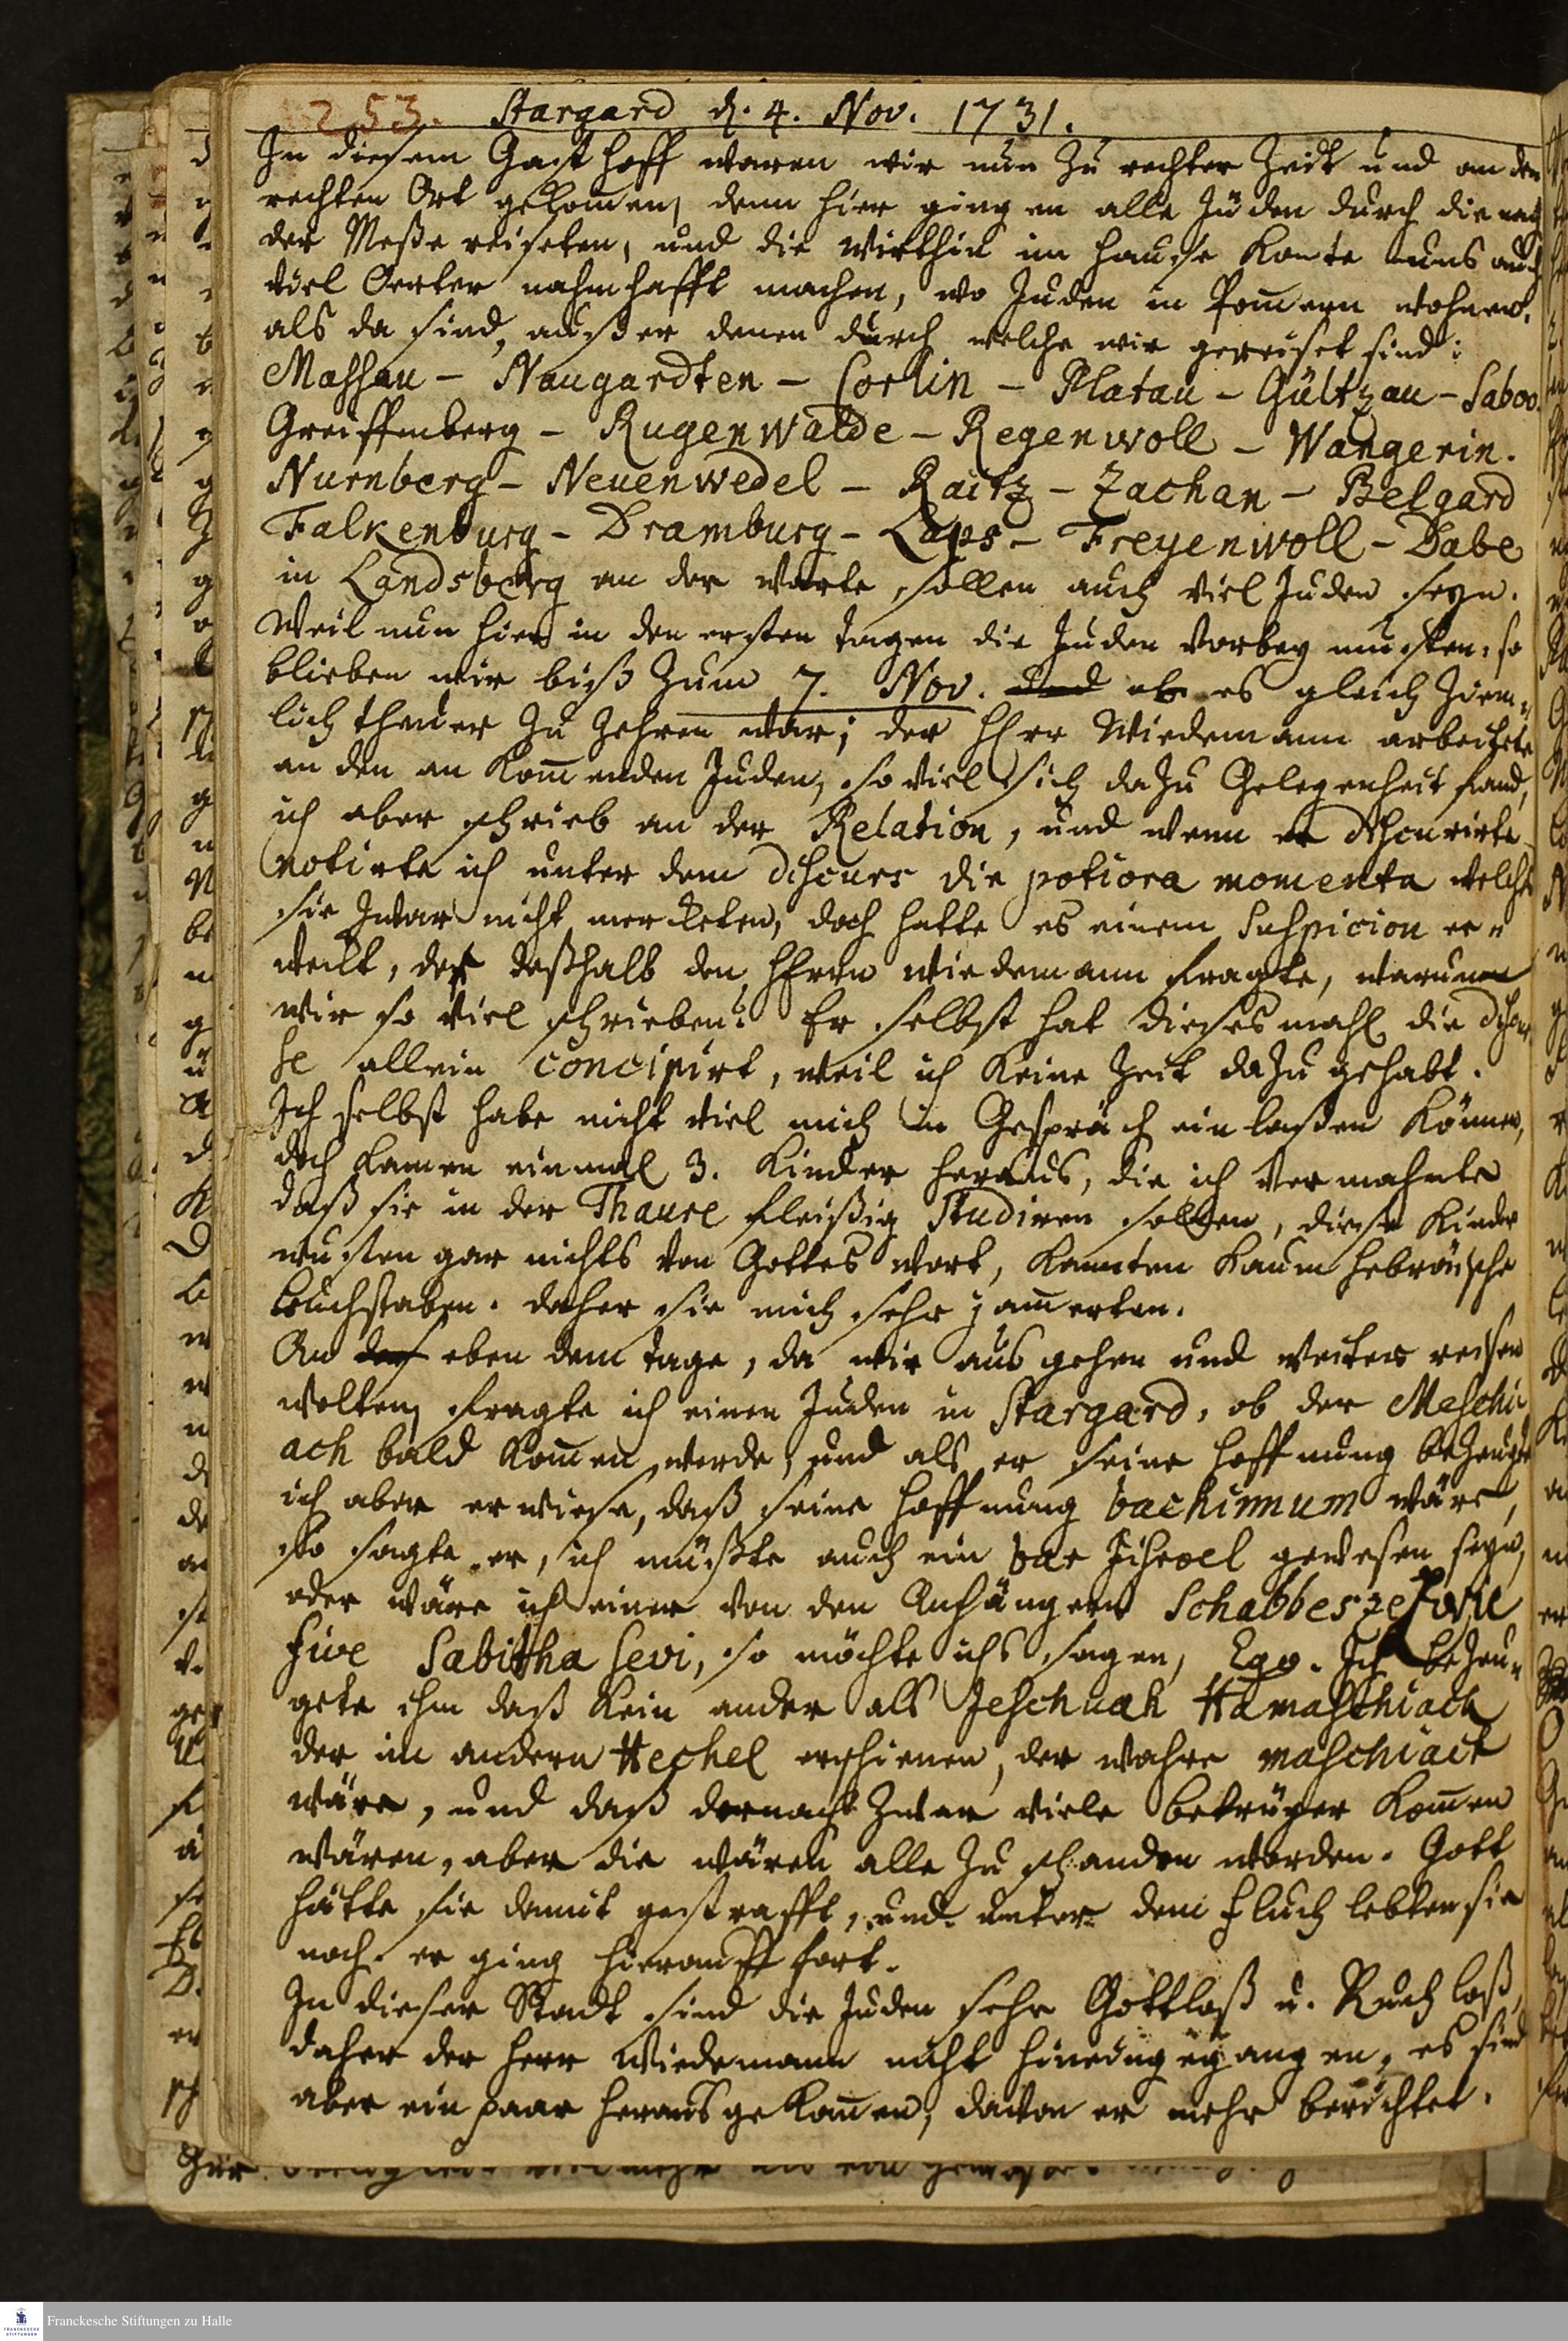 253. Stargard d. 4. Nov. 1731.
In diesem Gasthoff waren wir nun zu rechter Zeit und an den
rechten Ort gekom̄en, denn hier gingen alle Juden durch die nach
der Meße reiseten, und die Wirthin im Hause konte uns auch
viel Oerter nahmhafft machen, wo Juden in Pom̄ern wohnen,
als da sind, außer denen durch welche wir gereiset sind:
Massau - Naugardten - Corlin - Platau - Gültzau - Saboo.
Greiffenberg - Rugenwalde - Regenwoll - Wangerin.
Nurnberg - Neuenwedel - Raitz - Zachan - Belgard
Falkenburg - Dramburg - Laps - Freyenwoll - Dabe
in Landsberg an der Warte, sollen auch viel Juden seyn.
Weil nun hier in den ersten Tagen die Juden vorbey musten, so
blieben wir biß zum 7. Nov. ob es gleich ziem-
lich theuer zu zehren war; der Herr Wiedemann arbeitete
an den ankom̄enden Juden, so viel sich dazu Gelegenheit fand,
ich aber schrieb an der Relation, und wenn er discurirte
notirte ich unter dem Discurs die potiora momenta welche
sie zwar nicht merckten, doch hatte es einem Suspicion er-
weckt, der deßhalb den Herrn Wiedemann fragte, warum
wir so viel schrieben? Er selbst hat dieses mahl die Discur
se allein concipirt, weil ich keine Zeit dazu gehabt.
Ich selbst habe nicht viel mich in Gespräch einlaßen können,
doch kamen einmal 3. Kinder heraus, die ich vermahnte
daß sie in der Thaure fleißig studiren solten, diese Kinder
wusten gar nichts von Gottes Wort, kannten kaum hebräische
Buchstaben. daher sie mich sehr jam̄erten.
An eben dem Tage, da wir ausgehen und weiter reisen
wolten, fragte ich einen Juden in Stargard, ob der Maschi
ach bald kom̄en werde, und als er seine Hoffnung bezeugte
ich aber erwiese, daß seine Hoffnung bachinnum wäre,
so sagte er, ich müßte auch ein bar Jisroel gewesen seyn,
oder wäre ich einer von den Anhängern Schabbes
sive Sabitha Sevi, so möchte ichs sagen, Ego. Ich bezeu-
gete ihm daß kein ander als Jeschuah Hamaschiach
der im andern Hechel erschienen, der wahre maschiach
wäre, und daß dernach zwar viele Betrüger kom̄en
wären, aber die wären alle zu schanden worden. Gott
hätte sie damit gestrafft, und unter dem Fluch lebten sie
noch. er ging hierauff fort.
In dieser Stadt sind die Juden sehr Gottloß u. Ruchloß,
daher der Herr Wiedemann nicht hineingegangen, es sind
aber ein paar herausgekom̄en, davon er mehr berichtet.
Franckesche Stiftungen zu Halle